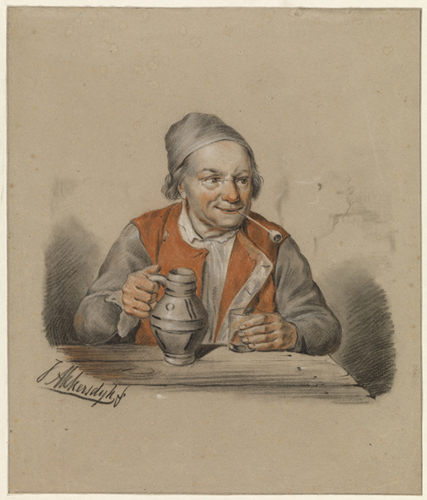 J Akkersdyk f